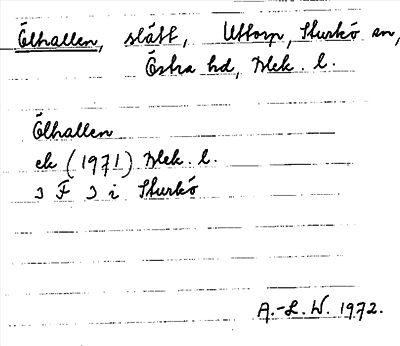 Ölhallen, slått, Uttorp, Sturkö sn,
Östra hd, Blek. l.
Ölhallen
ek (1971) Blek. l.
3 F 3 i Sturkö
A.-L. W. 1972.